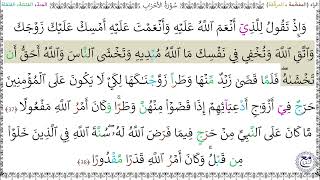 سُورَةُ الأحزاب
وَإِذْ تَقُولُ لِلَّذِيٓ أَنْعَمَ ٱللَّهُ عَلَيْهِ وَأَنْعَمْتَ عَلَيْهِ أَمْسِكْ عَلَيْكَ زَوْجَكَ
وَٱتَّقِ ٱللَّهَ وَتُخْفِي فِي نَفْسِكَ مَا ٱللَّهُ مُبْدِيهِ وَتَخْشَى ٱلنَّاسَ وَٱللَّهُ أَحَقُّ أَن
تَخْشَىٰهُ ۖ فَلَمَّا قَضَىٰ زَيْدٌ مِّنْهَا وَطَرًا زَوَّجْنَٰكَهَا لِكَيْ لَا يَكُونَ عَلَى ٱلْمُؤْمِنِينَ
حَرَجٌ فِيٓ أَزْوَٰجِ أَدْعِيَآئِهِمْ إِذَا قَضَوْا۟ مِنْهُنَّ وَطَرًا ۚ وَكَانَ أَمْرُ ٱللَّهِ مَفْعُولًا ﴿٣٧﴾
مَّا كَانَ عَلَى ٱلنَّبِيِّ مِنْ حَرَجٍ فِيمَا فَرَضَ ٱللَّهُ لَهُۥ ۖ سُنَّةَ ٱللَّهِ فِي ٱلَّذِينَ خَلَوْا۟
مِن قَبْلُ ۚ وَكَانَ أَمْرُ ٱللَّهِ قَدَرًا مَّقْدُورًا ﴿٣٨﴾